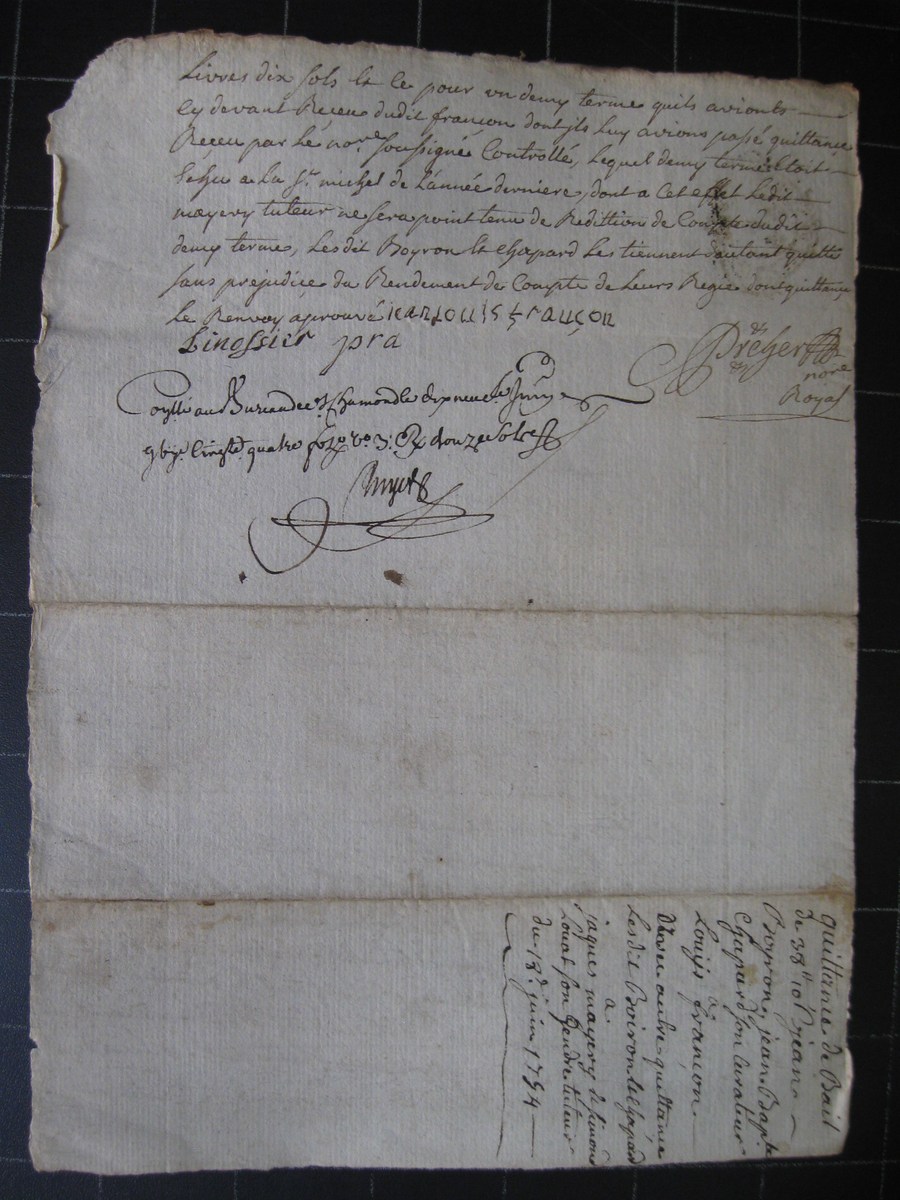 Livres dix sols Et ce pour un demy terme quils avionts
cy devant Reçeu dudit françon dont ils luy avions passé quittance
Reçeu par Le nore soussigné Controllé, Lequel demy terme Etoit
Echu a La St michel de L'année derniere, dont a Cet effet Ledit
mayery tuteur ne sera point tenu de Reddition de Compte dudit
demy termes, Lesdit Boyron Et Chapard Les tiennent dautant quitte
sans prejudice du Rendement de Compte de Leurs Regie dont quittance
Le Renvoy aprouvé iean Louis françon
Linossier pra
Dreher
nore
Royal
au Bureau de St Chamond le dix neuf
quatre fo vo 3 douze sols
quittance de Bail
de 38 10 s jean
Boyron, jean Bapte
Chapard son Curateur
a
Louijs françon
avec autre quittance
Lesdit Boiron et Chapard
a
jaques mayery et simond
Louat son gendre tuteur
du 18e juin 1754